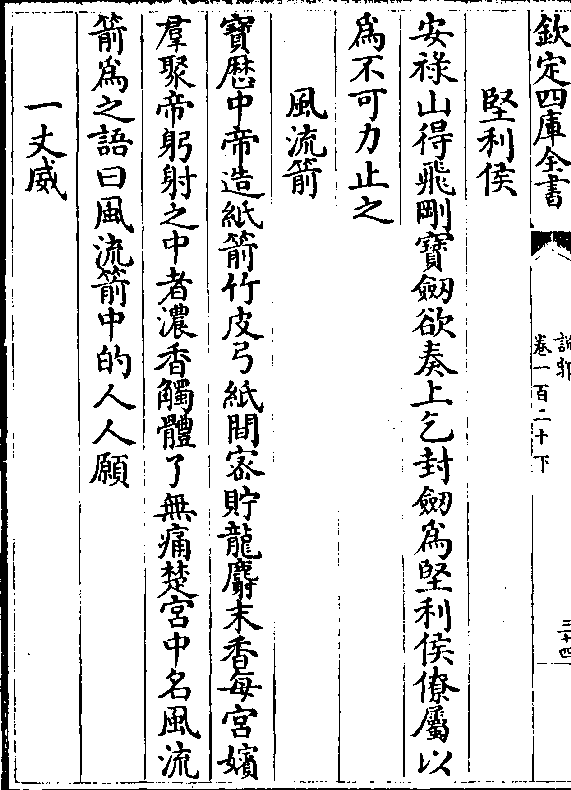 欽定四庫全書
說郛
卷一百二十下
三十四
堅利侯
安祿山得飛剛寶劒欲奏上乞封劒爲堅利侯僚屬以
爲不可力止之
風流箭
寶厯中帝造紙箭竹皮弓紙間宻貯龍麝末香每宮嬪
羣聚帝躬射之中者濃香觸體了無痛楚宮中名風流
箭爲之語曰風流箭中的人人願
一丈威